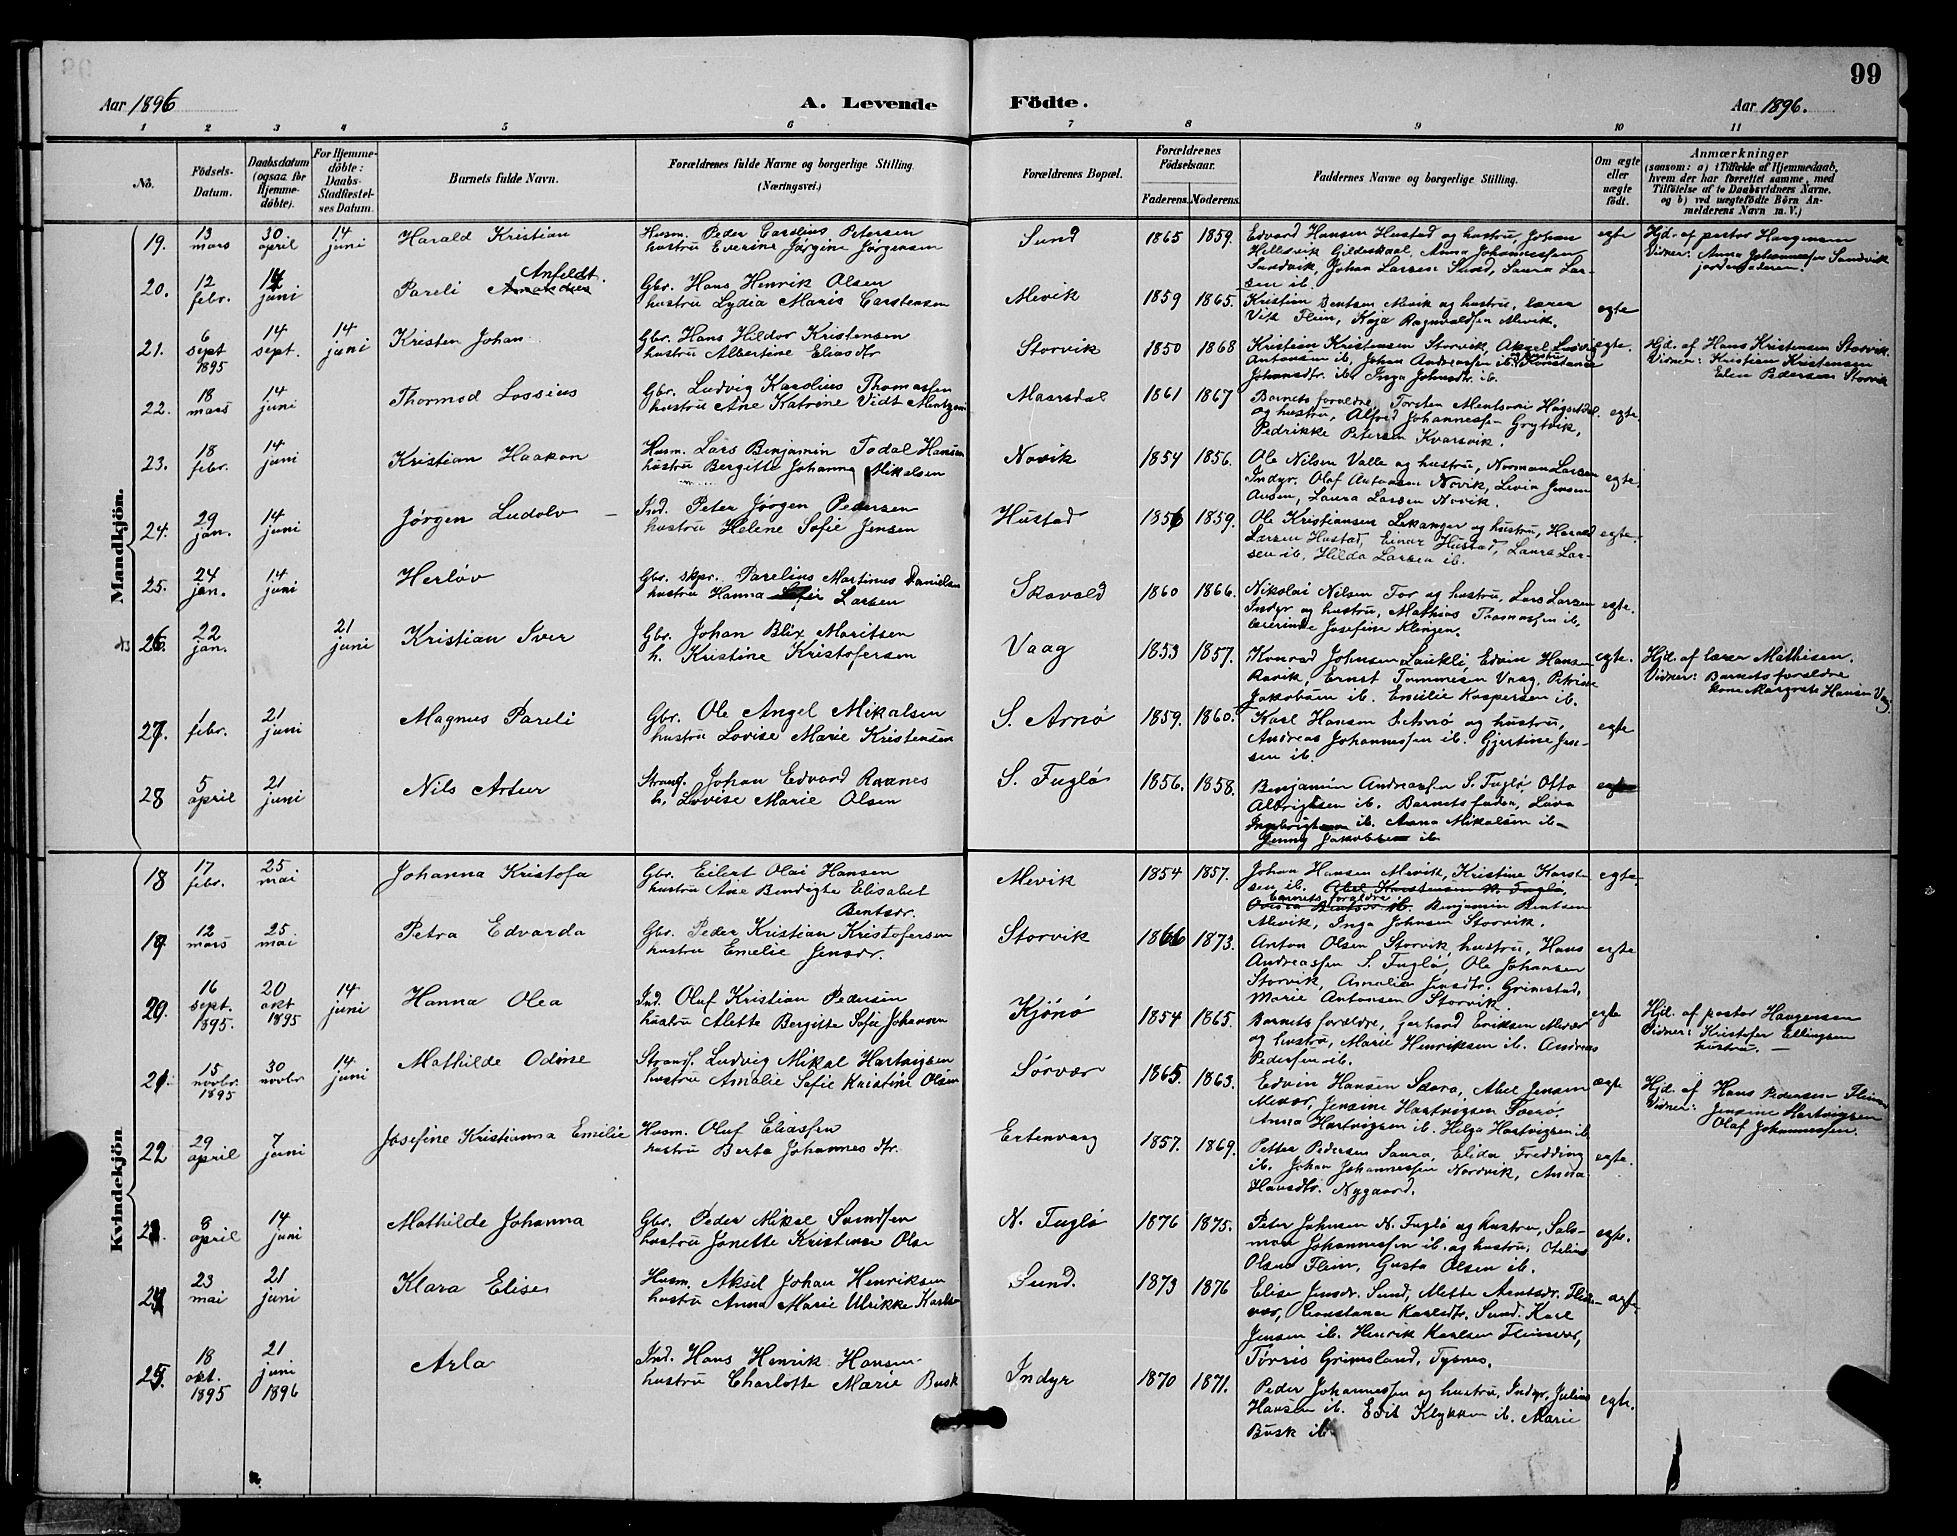 99
Aar 1896
A. Levende
Födte.
Aar 1896.
1 2 3 4 5 6 7 8 9 10 11
No.
Födsels-
Datum.
Daabsdatum
(ogsaa for
Hjemme-
döbte).
For Hjemme-
döbte:
Daabs-
Stadfæstel-
ses Datum.
Barnets fulde Navn.
Forældrenes fulde Navne og borgerlige Stilling.
(Næringsvei.)
Forældrenes Bopæl.
Forældrenes
Födselsaar.
Faderens.
Moderens.
Faddernes Navne og borgerlige Stilling.
Om ægte
eller
uægte
födt.
Anmærkninger
(saasom: a) i Tilfælde af Hjemmedaab,
hvem der har forrettet samme, med
Tilföielse af to Daabsvidners Navne,
og b) ved uægtefödte Börn An-
melderens Navn m. V.)
Mandkjön.
19. 13 mars 30 april 14 juni Harald Kristian
Husm. Peder Carolius Petersen
hustru Everine Jørgine Jørgensen
Sund 1865 1859.
Edvard Hansen Hustad og hustru, Johan
Hillesvik Gildeskaal, Anna Johannessen
Sandvik, Johan Larsen Sund, Laura Lar-
sen ib.
egte
Hjd. af pastor Haagensen
Vidner: Anna Johannessen Sandvik
20. 12 febr. 14 juni Pareli Anfeldt.
Gbr. Hans Henrik Olsen
hustru Lydia Maria Carstensen
Mevik 1859 1865.
Kristian Bentsen Mevik og hustru, lærer
Vik Flein, Kaja Ragnvaldsen Mevik.
egte
21. 6 sept 1895 14 sept. 14 juni Kristen Johan
Gbr. Hans Hildor Kristensen
hustru Albertine Eliasdtr
Storvik 1850 1868
Kristian Kristensen Storvik, Aksel Ludvig
Antonsen ib. Johan Andreassen ib. og hustru, Konstance
Johansdtr. ib. Inga Johnsdtr. ib.
egte.
Hjd. af Hans Kristensen Storvik
Vidner: Kristian Kristensen
Elen Pedersen Storvik
22. 18 mars 14 juni Thormod Lossius
Gbr. Ludvig Karolius Thomassen
hustru Ane Katrine Vidt Mentzoni
Maarsdal 1861 1867
Barnets forældre, Torsten Mentsoni Høgsetdal
og hustru, Alfred Johannessen Grytvik,
Pedrikke Petersen Kvarsvik.
egte.
23. 18 febr. 14 juni Kristian Haakon
Husm. Lars Benjamin Todal Hansen
hustru Bergitte Johanna Mikalsen
Novik 1854 1856.
Ole Nilsen Valle og hustru, Norman Larsen
Indyr. Olaf Antonsen Novik, Levia Jensen
Ausen, Laura Larsen Novik.
egte.
24. 29 jan. 14 juni Jørgen Ludolv
Ind. Peter Jørgen Pedersen
hustru Helene Sofie Jensen
Hustad 1856 1859.
Ole Kristiansen Lekanger og hustru, Harald
Larsen Hustad, Einar Hustad, Laura Lar-
sen ib. Hilda Larsen ib.
egte.
25. 24 jan. 14 juni Herløv
Gbr. skpr. Parelius Martinus Danielsen
hustru Hanna Larsen
Skavold 1860 1866.
Nikolai Nilsen Tor og hustru, Lars Larsen
Indyr og hustru, Mathias Thomassen ib.
lærerinde Josefine Klingen.
egte.
26. 22 jan. 21 juni Kristian Iver
Gbr. Johan Blix Maritsen
h. Kristine Kristofersen
Vaag 1853 1857.
Konrad Johnsen Laukli, Edvin Hansen
Ravik, Ernst Tommesen Vaag, Petrine
Jakobsen ib. Emilie Kaspersen ib.
egte.
Hjd. af lærer Mathisen.
Vidner: Barnets forældre
kone Margrete Hansen Vaag.
27. 1 febr. 21 juni Magnus Pareli
Gbr. Ole Angel Mikalsen
hustru Lovise Marie Kristensen
S. Arnø 1859. 1860.
Karl Hansen S. Arnø og hustru,
Andreas Johannessen ib. Gjertine Jen-
sen ib.
egte
28 5 april 21 juni Nils Artur
Strands. Johan Edvard Ravnes
h. Lovise Marie Olsen
S. Fuglø 1856. 1858.
Benjamin Andreassen S. Fuglø Otto
Albrigtsen ib. Barnets fader, Lava
Ingebrigtsen ib. Anna Mikalsen ib.
Jenny Jakobsen ib.
egte
Kvindekjön
18 17 febr. 25 mai Johanna Kristofa
Gbr. Eilert Olai Hansen
hustru Ane Bendigte Elisabet
Bentsdr.
Mevik 1854 1857.
Johan Hansen Mevik, Kristine Karst-
sen ib. Abel Karstensen N. Fuglø,
Barnets forældre
Benjamin Bentsen
Mevik, Inga Johnsen Storvik.
egte
19 12 mars 25. mai Petra Edvarda
Gbr. Peder Kristian Kristofersen
hustru Emelie Jensdr.
Storvik 1866 1873.
Anton Olsen Storvik, hustru, Hans
Andreassen S. Fuglø, Ole Johansen
Storvik, Amalie Jensdtr. Grimstad,
Marie Antonsen Storvik
egte
20. 16 sept. 1895. 20 okt 1895 14 juni Hanna Olea
Ind. Oluf Kristian Pedersen
hustru Alette Bergitte Sofie Johansen
Kjønø 1854 1865.
Barnets forældre, Gerhard Eriksen Mevær
og hustru, Marie Henriksen ib. Andreas
Pedersen ib.
egte
Hjd. af pastor Haagensen
Vidner: Kristofer Ellingsen
hustru. —
21. 15 novbr. 1895 30 novbr 14 juni Mathilde Odine
Strands. Ludvig Mikal Hartvigsen
hustru Amalie Sofie Kristine Olsen
Sørvær 1865. 1863.
Edvin Hansen Skara, Abel Jensen
Mevær, Jensine Hartvigsen
Anna Hartvigsen ib. Helga Hartvigsen ib
ægte
Hjd. af Hans Pedersen
Vidner: Jensine Hartvigsen
Olaf Johannessen.
22 29 april 7 juni Josefine Kristianna Emilie
Husm. Oluf Eliassen
hustru Berta Johannesdtr.
Ertenvaag 1857. 1869.
Petter Pedersen Saura, Elida Fredding
ib. Johan Johannessen Nordvik, Anna
Hansdtr. Nygaard.
egte.
23. 8 april 14 juni Mathilde Johanna
Gbr. Peder Mikal Svendsen
hustru Jonette Kristense Olsen
N. Fuglø 1876 1875.
Peter Johnsen N. Fuglø og hustru, Salo-
mon Johannessen ib. og hustru, Otelius
Olsen Flein, Gusta Olsen ib.
egte.
24. 23 mai 21 juni Klara Elise
Husm. Aksel Johan Henriksen
hustru Anna Marie Ulrikke Karlsen
Sund. 1873 1876
Elise Jensdr. Sund, Mette Arntsdr. Flein-
vær, Constance Karlsdtr. Sund. Karl
Jensen ib. Henrik Karlsen Fleinvær,
Tørris Grimsland, Tysnes.
egte
25. 18 okt. 1895 21 juni 1896 Arla
Ind. Hans Henrik Hansen
hustru Charlotte Marie Busk
Indyr 1870 1871.
Peder Johannessen og hustru, Indyr, Julius
Hansen ib. Edit Klykken ib. Marie
Busk ib.
egte.